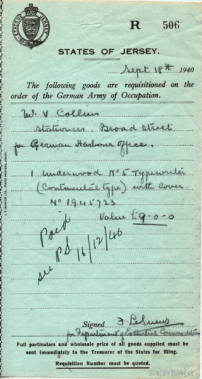 R 506
STATES OF JERSEY.
Sept 18th 1940
The following goods are requisitioned on the
order of the German Army of Occupation.
Mr V Collins
Stationer. Broad Street
for German Harbour Office.
1 Underwood No 5 Typewriter
(Continental type) with cover
No 1945723
Value £9-0-0
Paid
see Pd 16/12/40
Signed
for Department of Essential Commodities
Full particulars and wholesale price of all goods supplied must be
sent immediately to the Treasurer of the States for filing.
Requisition Number must be quoted.